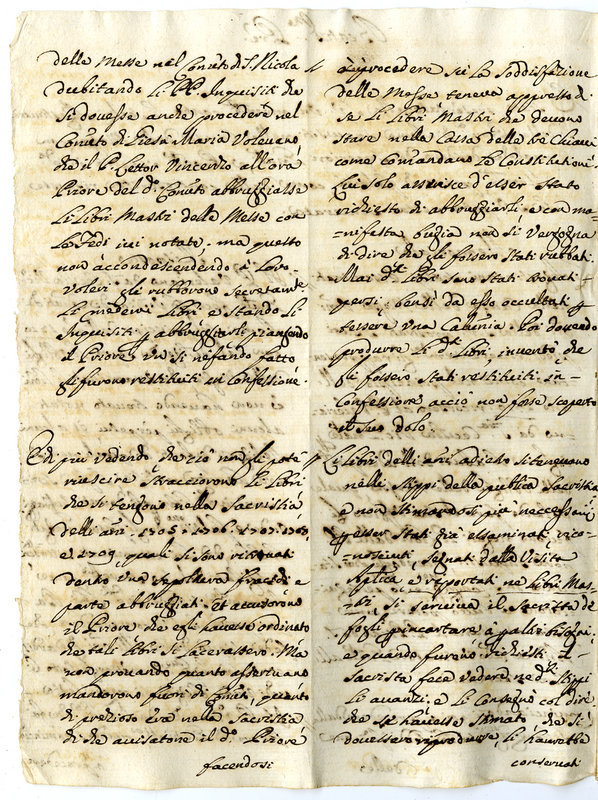 delle Messe nel Conv.to di S. Nicola
dubitando li PP. Inquisiti che
si dovesse anche procedere nel
Conv.to di Giesù Maria volevano
che il P. Lettor Vincenzo all'ora
Priore del d.o Conv.to abbruggiasse
li libri Mastri delle Messe con
le fedi ivi notate. ma questo
non accondescendendo a loro
voleri gli rubborono secretam.te
li medemi libri e stando li
Inquisiti p abbruggiarli piangendo
il Priore un sì nefando fatto
gli furono restituiti in Confessione.
E di più vedendo che ciò non gli poté
riuscire stracciorono li libri
che si tengono nella Sacristia
delli anni 1705. 1706. 1707. 1708.
e 1709 quali si sono ritrovati
dentro una sepoltura fracidi e
parte abbruggiati. et accusorono
il Priore che egli havesse ordinato
che tali libri si lacerassero. Ma
non provando quanto asserivano
mandorono fuori di Conv.to quanto
di prezioso era nella Sacristia
di che avisatone il d.o Priore
facendosi
procedere su la soddisfazione
delle Messe teneva appresso di
se li libri Mastri che devono
stare nella Cassa delle trè Chiavi
come comandano le Constitutioni.
Lui solo asserisce d'esser stato
richiesto di abbruggiarli e con ma-
nifesta bugia non si vergogna
di dire che gli fossero stati rubbati.
Mai d.ti libri sono stati trovati
persi, bensì da esso occultati p
tessere una Calunia. Poi dovendo
produrre li d.ti libri, inventò che
gli fossero stati restituiti in
Confessione acciò non fosse scoperto
il suo dolo.
Li libri delli anni a dietro si tenevano
nelli stippi della publica Sacristia
e non stimandosi più necessarij
p esser stati già essaminati rico-
nosciuti, segnati dalla Visita
Aplica, e riportati ne libri Mas-
tri, si serviva il Sacrista de
fogli p incartare a qualsi bisogni,
e quando furono richiesti il
Sacrista fece vedere ne d.i stippi
li avanzi e li consegnò col dire
che se havesse stimato che si
dovessero riprodurre, li haurebbe
conservati